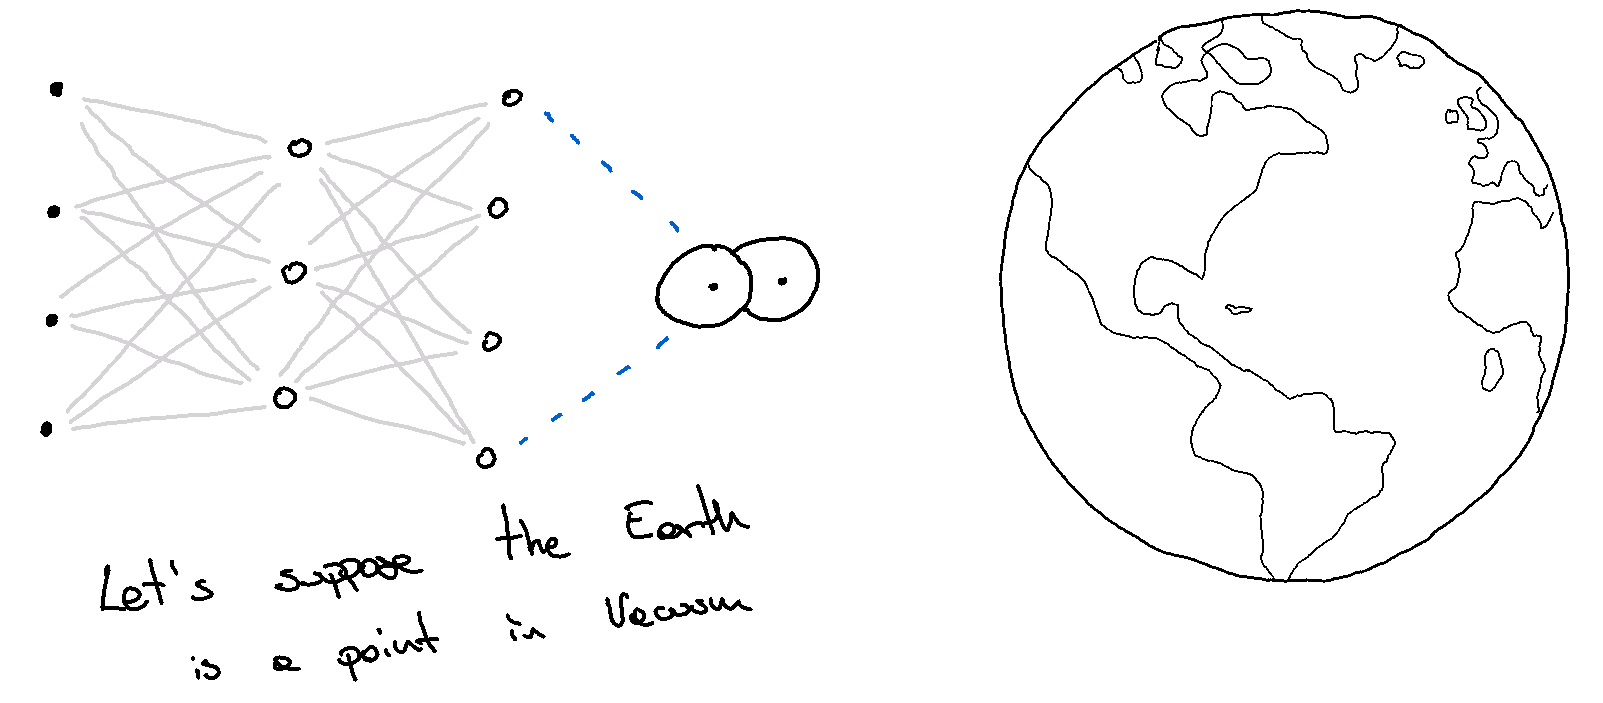 Let's suppose the Earth
is a point in Vacuum